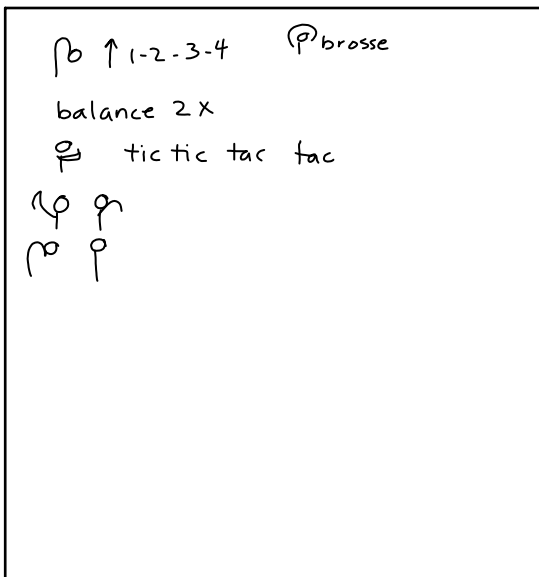 ↑ 1-2-3-4 brosse
balance 2x
tic tic tac tac